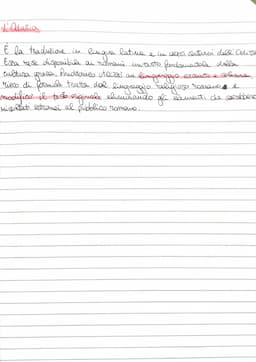 L'Odusia
È la traduzione in lingua latina e in versi saturni dell'Odissea
Essa rese disponibile ai romani un testo fondamentale della
cultura greca. Andronico utilizzò un linguaggio arcaico e solenne,
ricco di formule tratte dal linguaggio religioso romano e
modificò il testo originale eliminando gli elementi che sarebbero
risultati estranei al pubblico romano.